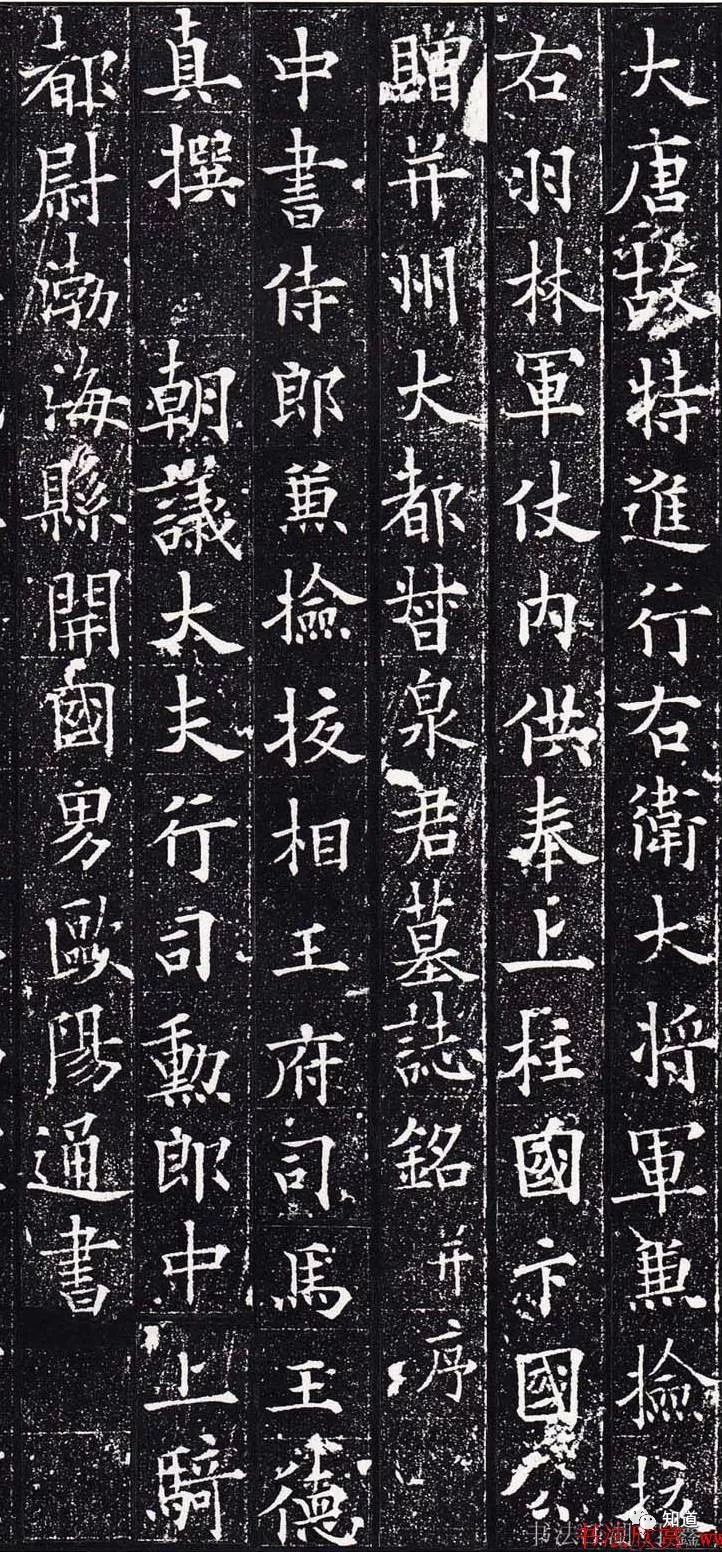 大唐故特進行右衛大將軍兼撿挍
右羽林軍仗内供奉上柱國卞國公
贈并州大都督泉君墓誌銘并序
中書侍郎兼撿挍相王府司馬王德
真撰 朝議大夫行司勳郎中上騎
都尉渤海縣開國男歐陽通書
知道
书法欣赏